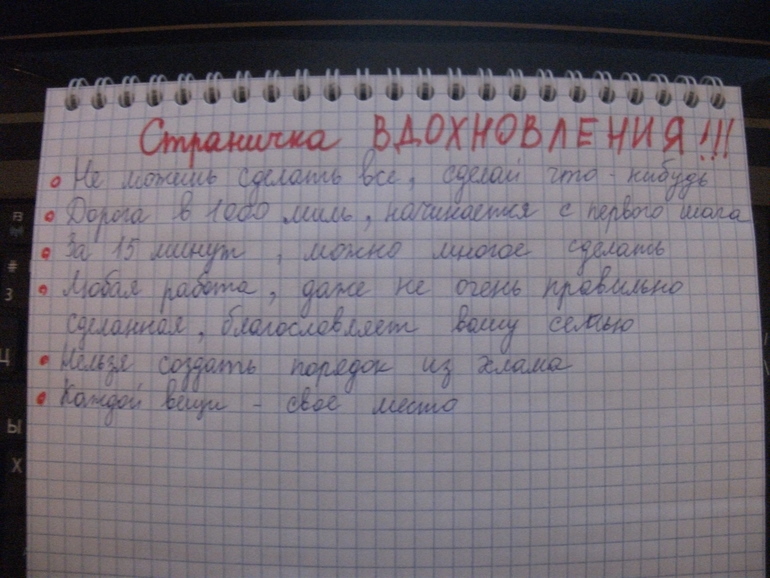 Страничка ВДОХНОВЛЕНИЯ!!!
• Не можешь сделать все, сделай что-нибудь
• Дорога в 1000 миль, начинается с первого шага
• За 15 минут, можно многое сделать
• Любая работа, даже не очень правильно
сделанная, благославляет вашу семью
• Нельзя создать порядок из хлама
• Каждой вещи - свое место
#
3
Ц
Ы
X